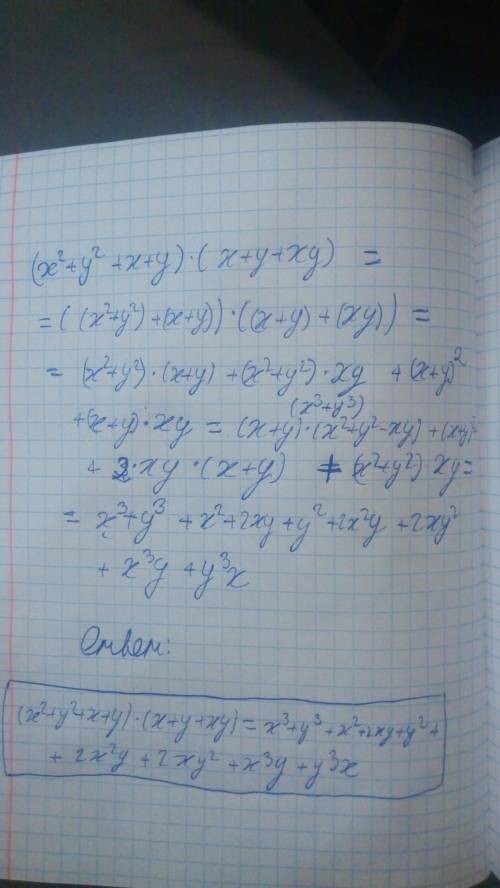 (x²+y²+x+y)·(x+y+xy) =
=((x²+y²)+(x+y))·((x+y)+(xy)) =
= (x²+y²)·(x+y)+(x²+y²)·xy +(x+y)²
(x³+y³)
+(x+y)·xy = (x+y)·(x²+y²-xy)+(x+y)²
+ 2·xy·(x+y) + (x²+y²)·xy=
= x³+y³+x²+2xy+y²+2x²y+2xy²
+ x³y + y³x
Ответ:
(x²+y²+x+y)·(x+y+xy)=x³+y³+x²+2xy+y²+
+ 2x²y + 2xy² + x³y + y³x